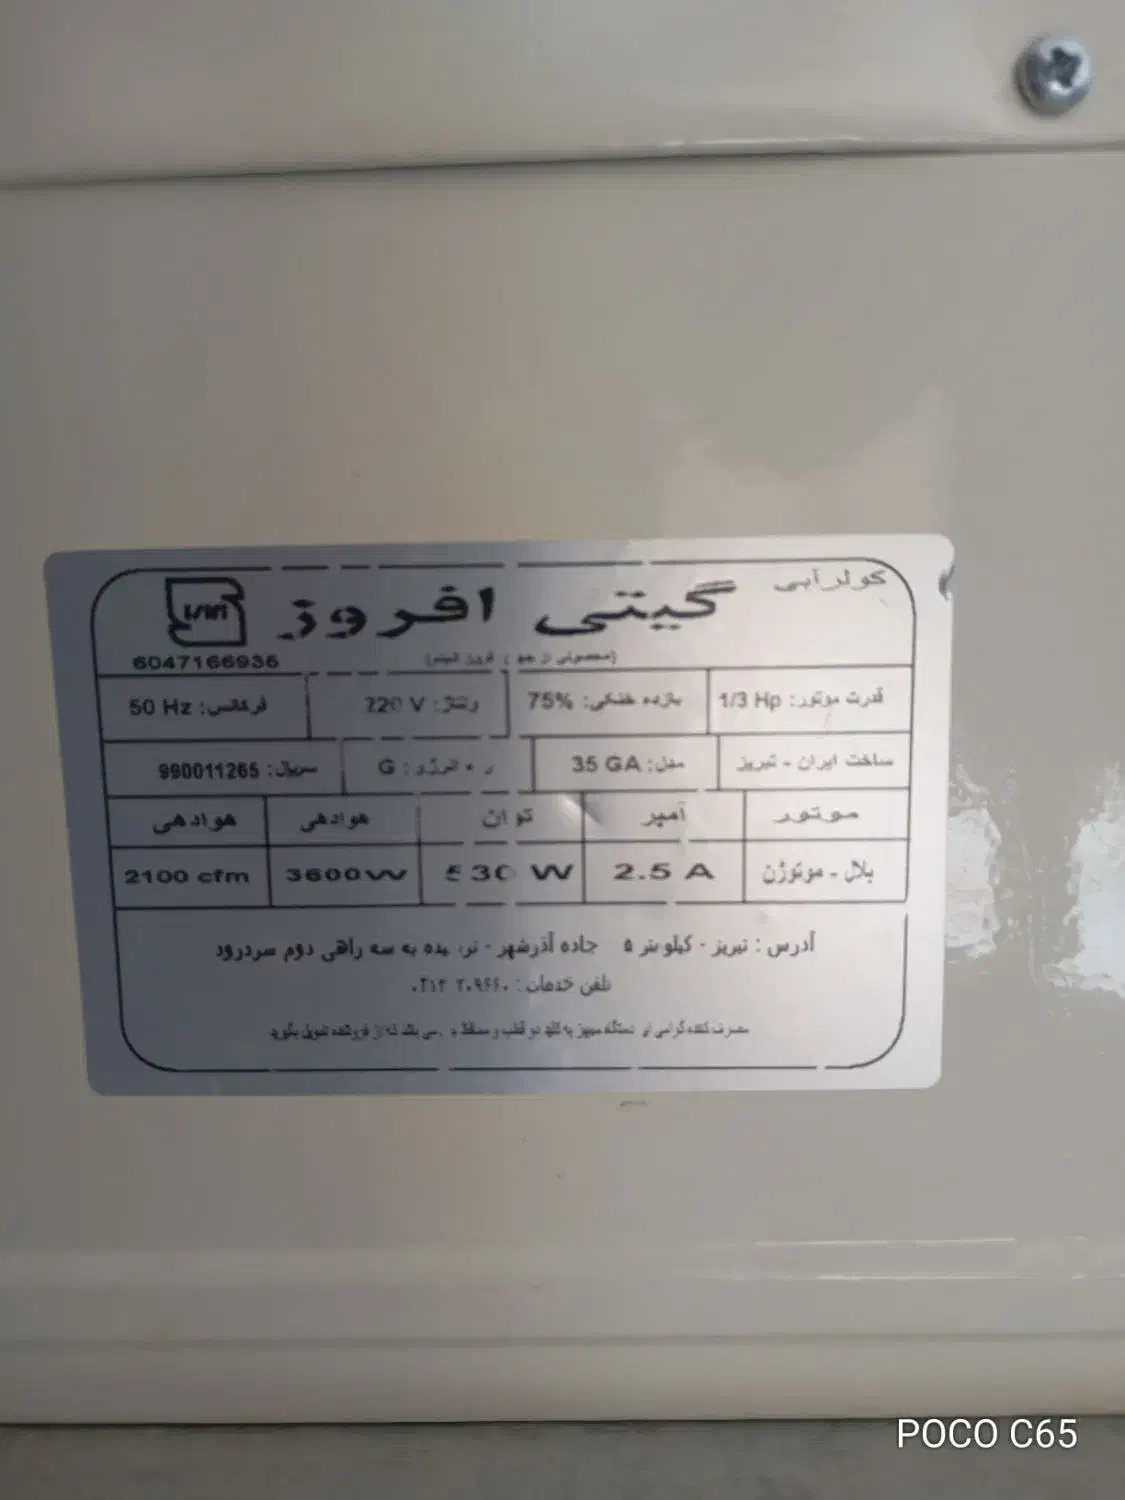 کولر آبی
گیتی افروز
ISIRI
6047166936
(محصولی از
قدرت موتور: 1/3 Hp
بازده خنکی: 75%
ولتاژ: 220 V
فرکانس: 50 Hz
ساخت ایران - تبریز
مدل: 35 GA
انرژی: G
سریال: 990011265
موتور
آمپر
توان
هوادهی
هوادهی
بلال - موتوژن
2.5 A
530 W
3600w
2100 cfm
آدرس : تبریز - کیلومتر ۵ جاده آذرشهر - نرسیده به سه راهی دوم سردرود
تلفن خدمات :
مصرف کننده گرامی این دستگاه مجهز به کلید دو قطب و محافظ می باشد از فروشنده تحویل بگیرید
POCO C65